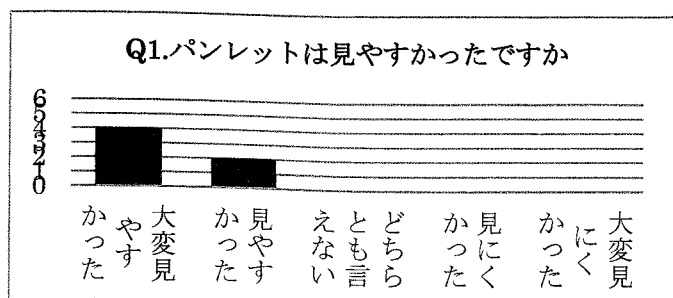 Q1.パンレットは見やすかったですか
6
5
4
3
2
1
0
大変見
やす
かった
見やす
かった
どちら
とも言
えない
見にく
かった
大変見
にく
かった